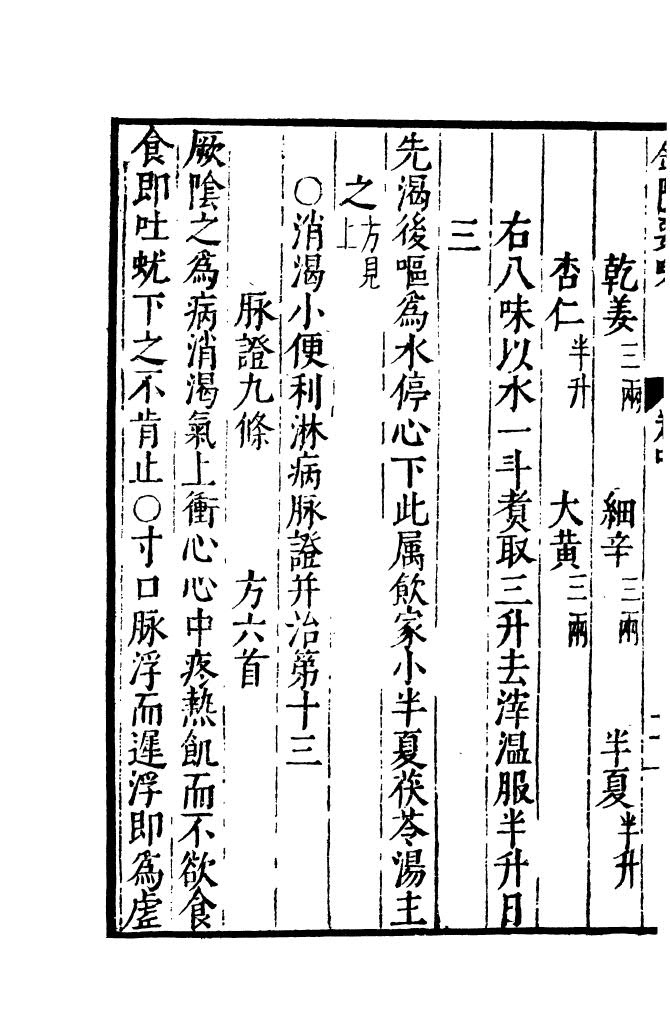 乾姜三兩　細辛三兩　半夏半升
杏仁半升　大黄三兩
右八味以水一斗煑取三升去滓温服半升日
三
先渴後嘔爲水停心下此属飲家小半夏茯苓湯主
之方見上
○消渴小便利淋病脉證并治第十三
脉證九條　方六首
厥隂之爲病消渴氣上衝心心中疼熱飢而不欲食
食即吐蚘下之不肯止○寸口脉浮而遲浮即爲虚